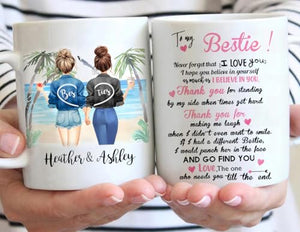 Bes
ties
Heather & Ashley
To my
Bestie !
Never forget that I LOVE YOU,
I hope you believe in yourself
as much as I BELIEVE IN YOU.
Thank you for standing
by my side when times get hard.
Thank you for
making me laugh
when I didn't even want to smile.
If I had a different Bestie,
I would punch her in the face
AND GO FIND YOU
Love, The one
who needs you till the end.